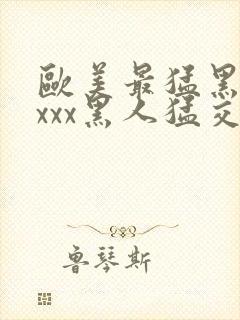 歐美最猛黑
xxx黑人猛交
魯琴斯